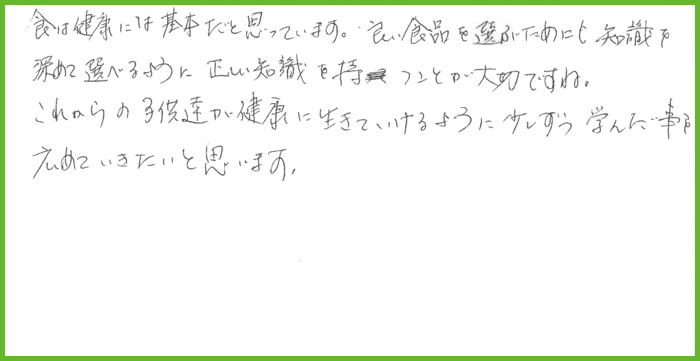 食は健康には基本だと思っています。良い食品を選ぶためにも知識を
深めて選べるように正しい知識を持つことが大切ですね。
これからの子供達が健康に生きていけるように少しずつ学んだ事を
広めていきたいと思います。